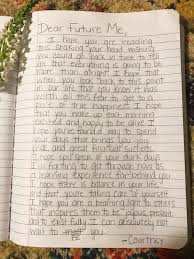 Dear Future Me,
I hope you are reading
this shaking your head wishing
you could go back in time to tell
me that everything is going to be
more than alright. I hope that
when you look back to this point
in our life that you know it was
worth all this fear to get to a
place of true happiness. I hope
that you wake up every morning
happy to be alive. I hope
you've found a way to spend
your days that brings you
pride and great familiar smiles.
I hope you spent of your dark days
I'm fighting to get through now as
a learning experience far behind you.
I hope there is balance in your life,
and that you're taking care of yourself.
I hope you are a beaming light to others
that inspires them to be joyous, present,
and to exist fully. I can absolutely not
wait to meet you.
-Courtney